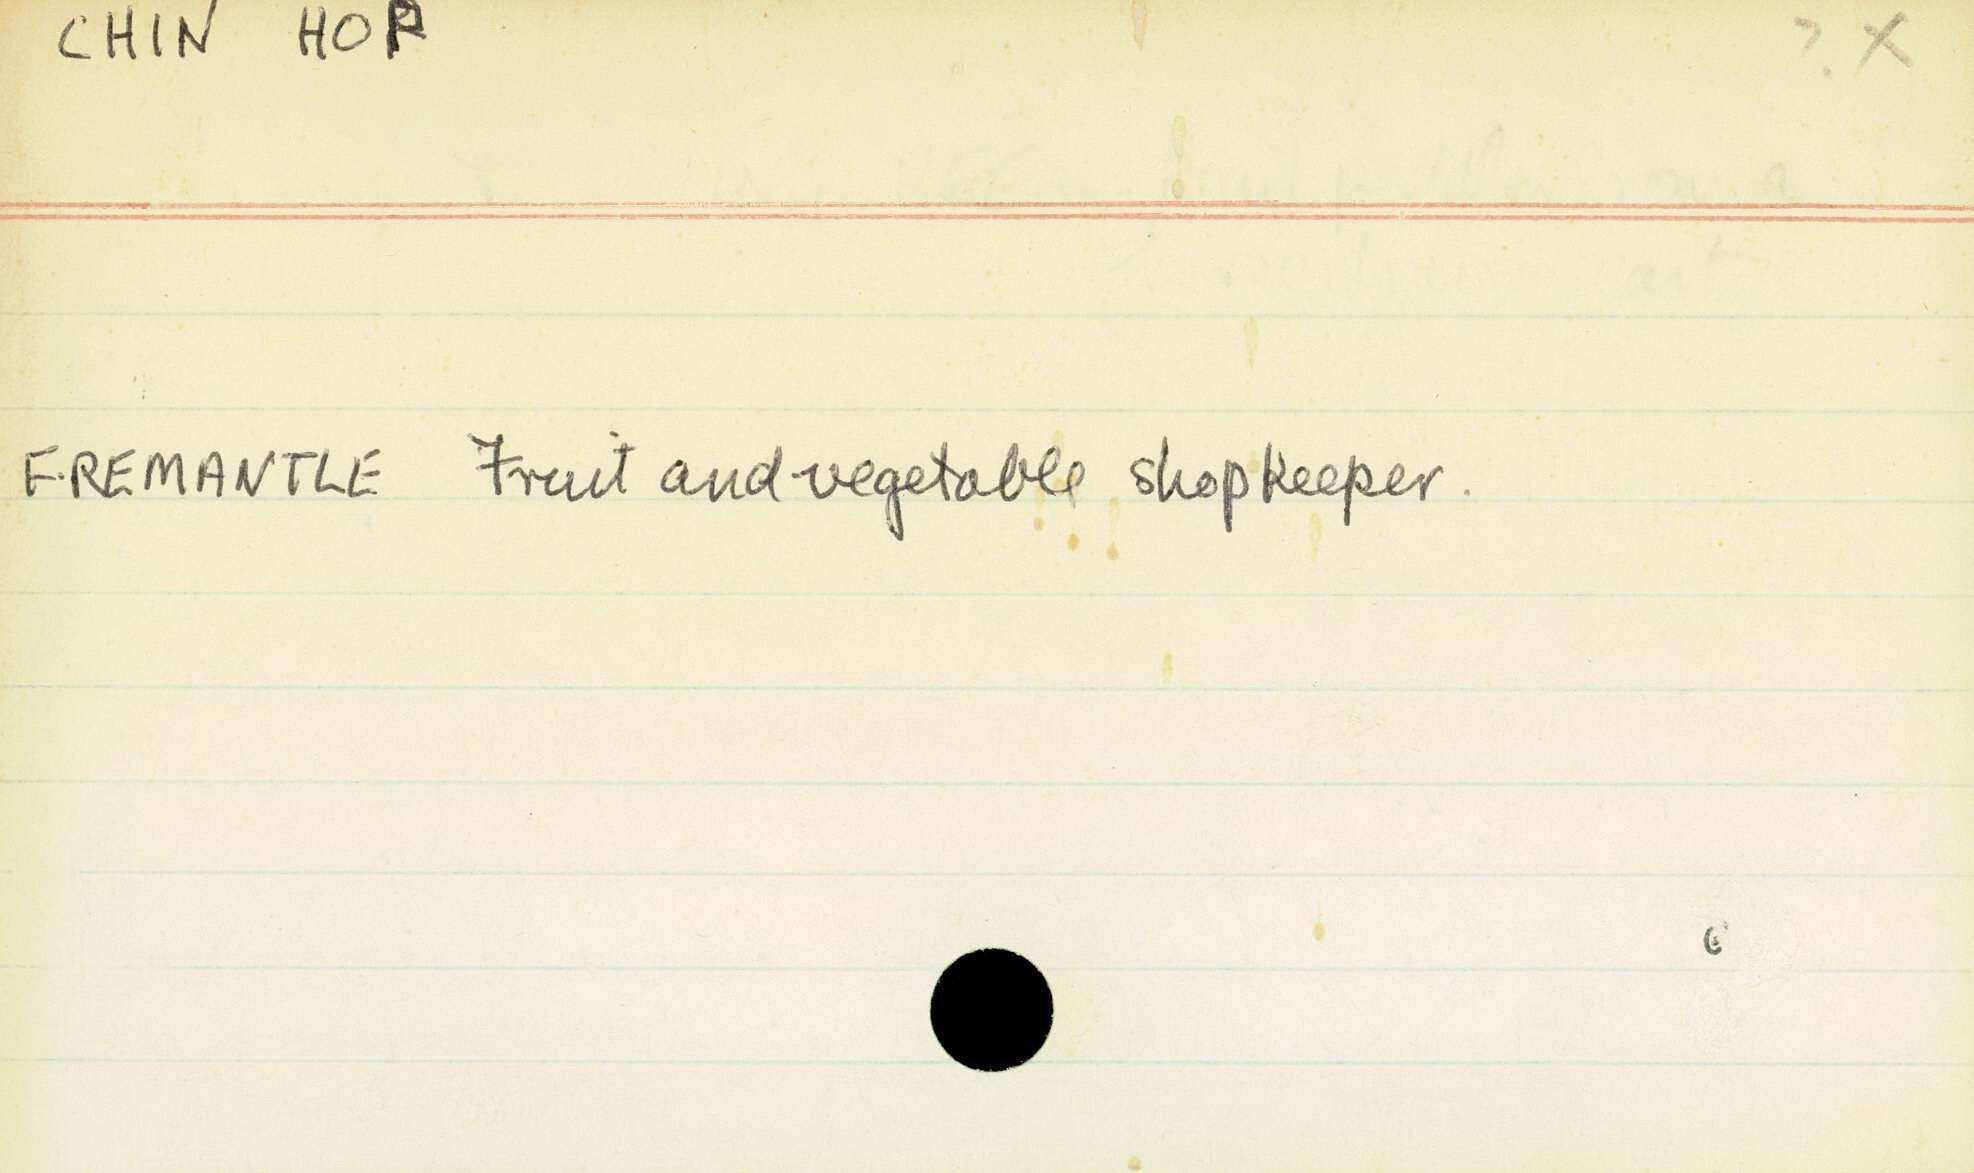 CHIN HOP ? X
FREMANTLE Fruit and vegetable shopkeeper.